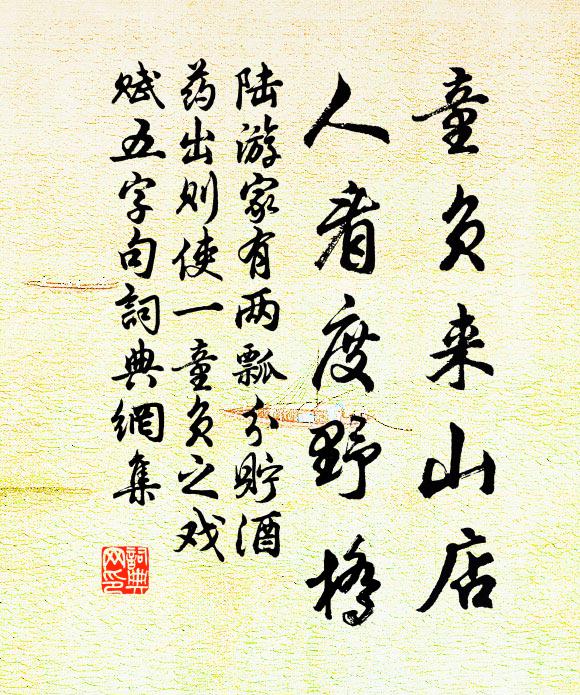 童负来山店
人看度野桥
陆游家有两瓢分贮酒
药出则使一童负之戏
赋五字句詞典網集
詞典网印